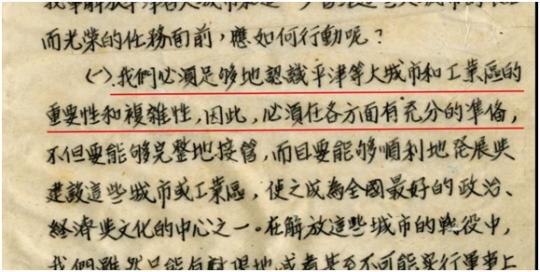 我軍解放平津各大城市
而光榮的任務面前，應如何行動呢？
㈠.我們必須足够地認識平津等大城市和工業區的
重要性和複雜性，因此，必須在各方面有充分的準备，
不但要能够完整地接管，而且要能够順利地發展與
建設這些城市或工業區，使之成為全國最好的政治、
經濟與文化的中心之一。在解放這些城市的戰役中，
我們雖然只能有